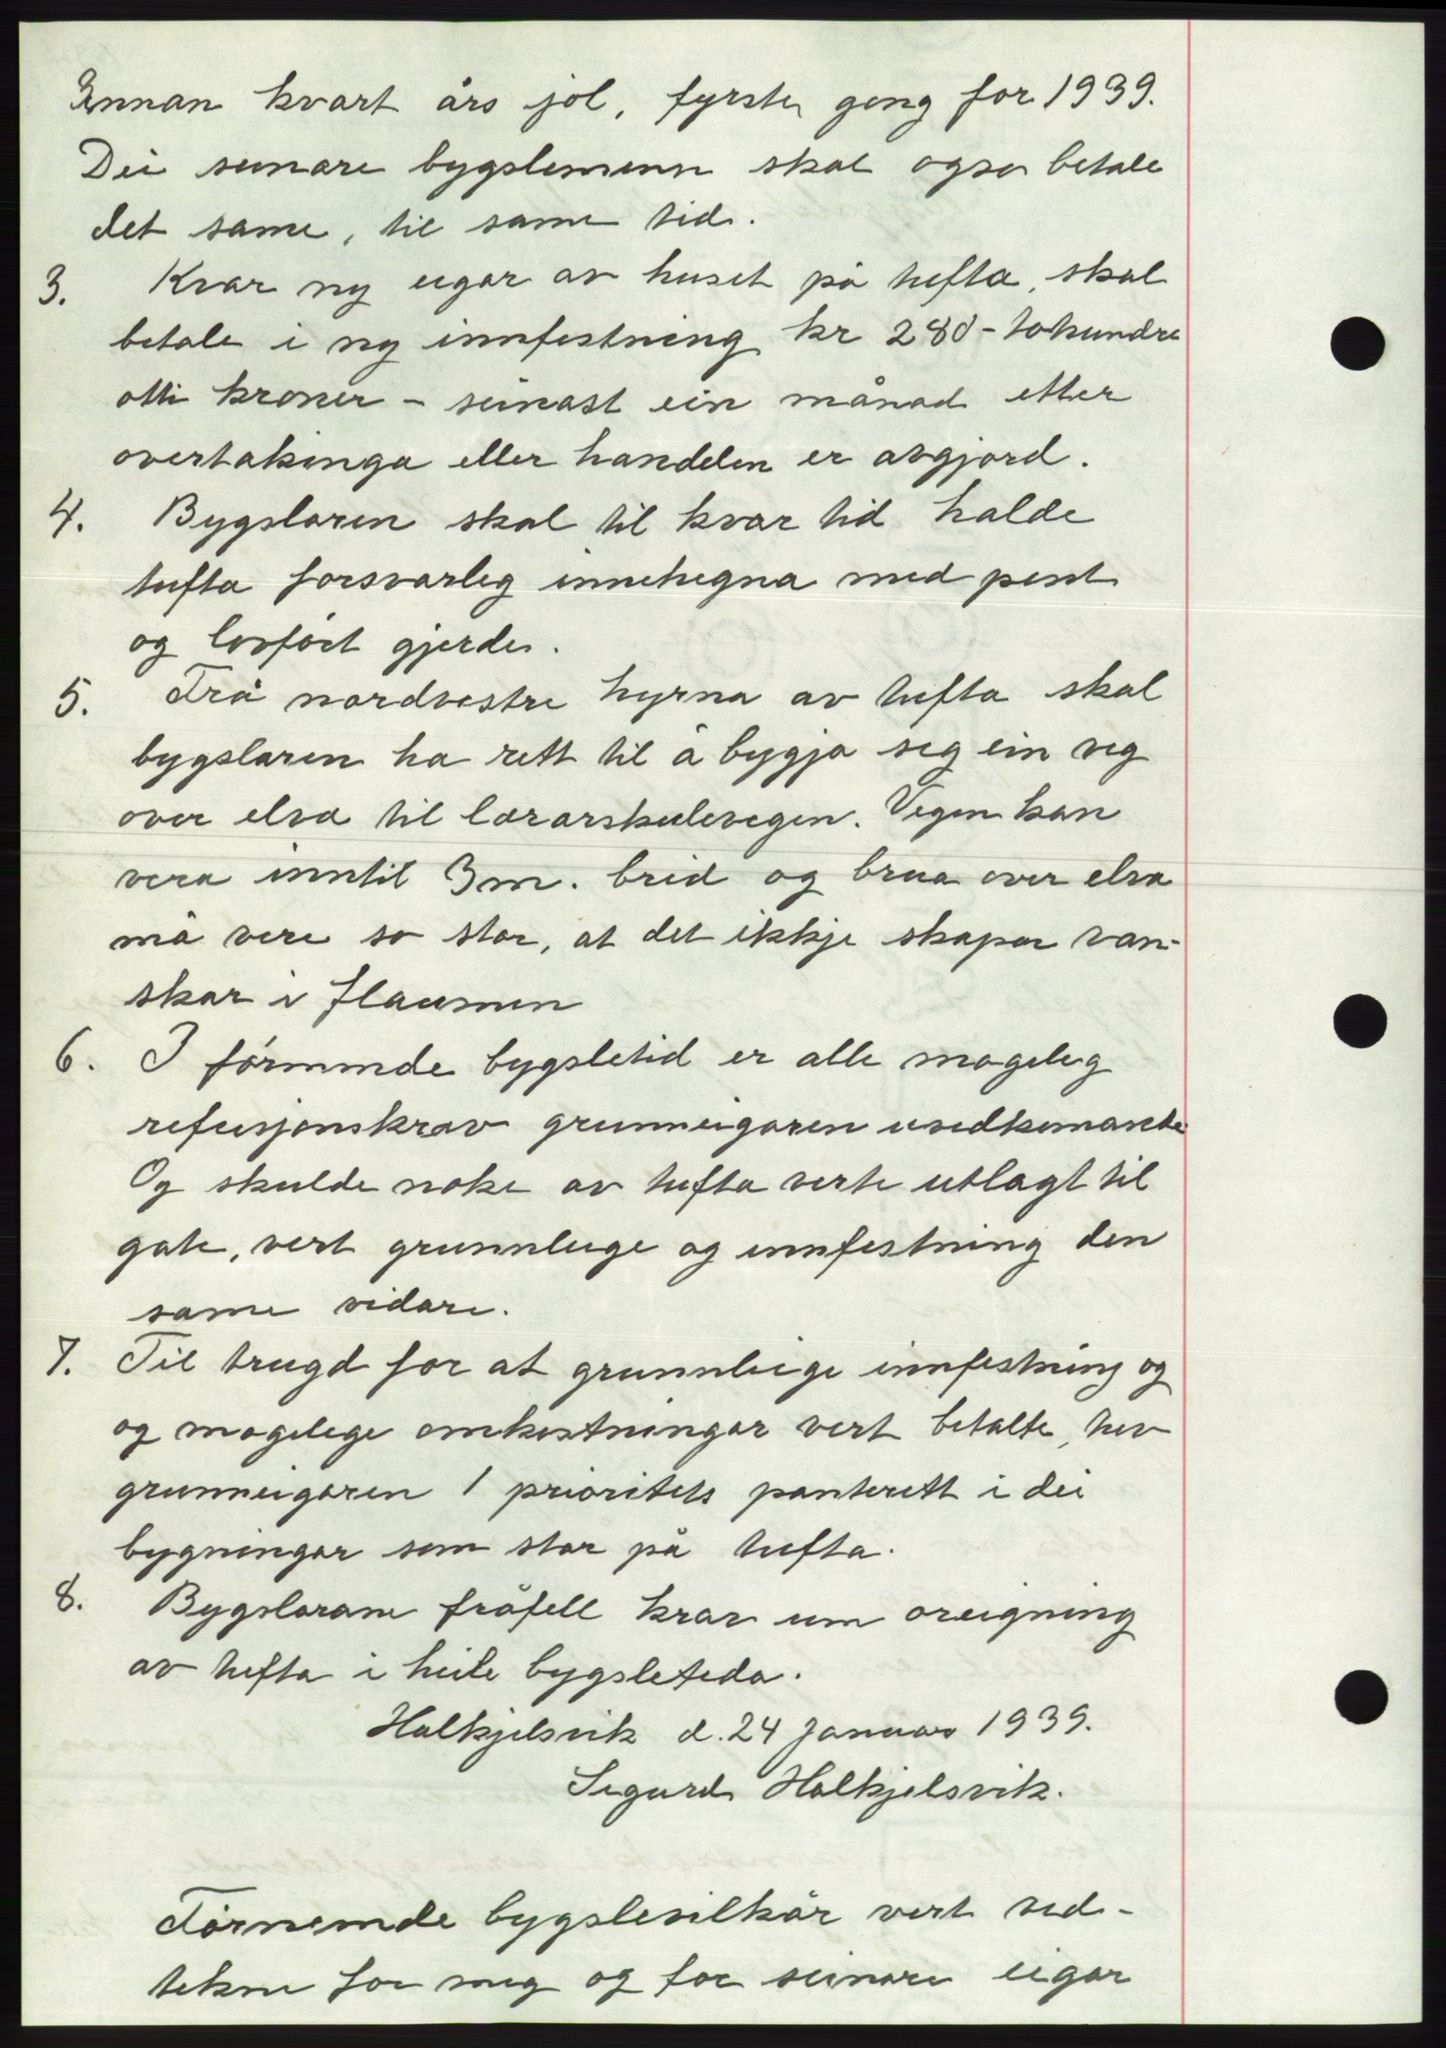 Innan kvart års jol, fyrste geng for 1939.
Dei seinare bygslemenn skal ogso betale
det same, til same tid.
3. Kvar ny eigar av huset på tufta, skal
betale i ny innfestning kr 280 - tohundre
otti kroner - seinast ein månad etter
overtakinga eller handelen er avgjord.
4. Bygslaren skal til kvar tid halde
tufta forsvarleg innehegna med pent
og lovført gjerde.
5. Frå nordvestre hyrna av tufta skal
bygslaren ha rett til å bygja seg ein veg
over elva til lærarskulevegen. Vegen kan
vera inntil 3 m. breid og brua over elva
må vere so stor, at det ikkje skapar van-
skar i flaumen
6. I förnemnde bygsletid er alle mogeleg
refusjonskrav grunneigaren uvedkomande
Og skulde noke av tufta verte utlagt til
gate, vert grunnleige og innfestning den
same vidare.
7. Til trugd for at grunnleige innfestning og
og mogelege omkostningar vert betalte, hev
grunneigaren 1 prioritets panterett i dei
bygningar som star på tufta.
8. Bygslarane fråfell krav um oreigning
av tufta i heile bygsletida.
Halkjelsvik d. 24 Januar 1939.
Sigurd Halkjelsvik.
Förnemde bygslevilkår vert ved-
tekne for meg og for seinare eigar